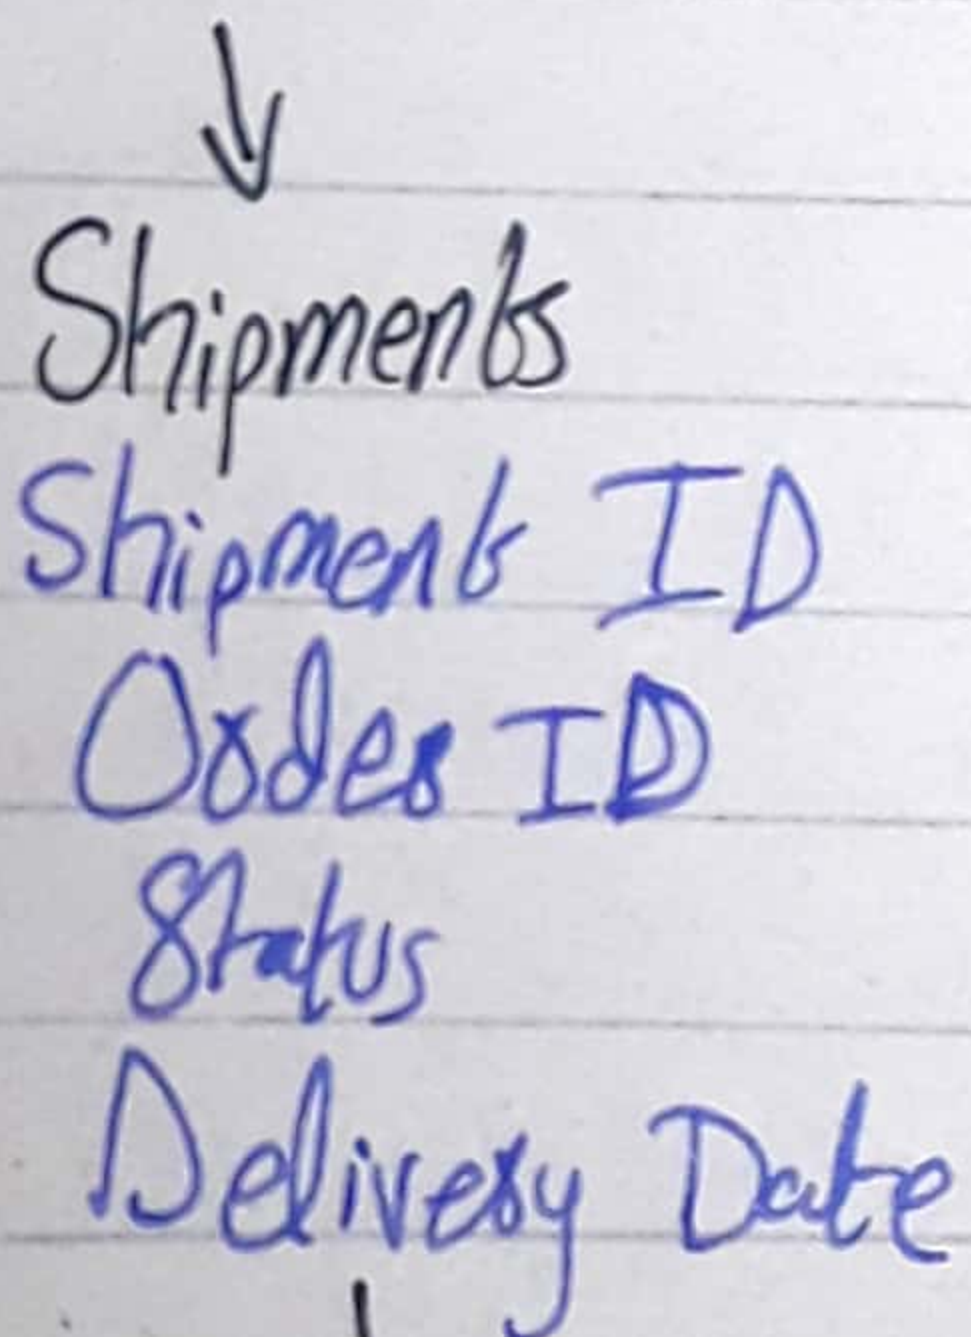 Shipments
Shipment ID
Order ID
Status
Delivery Date